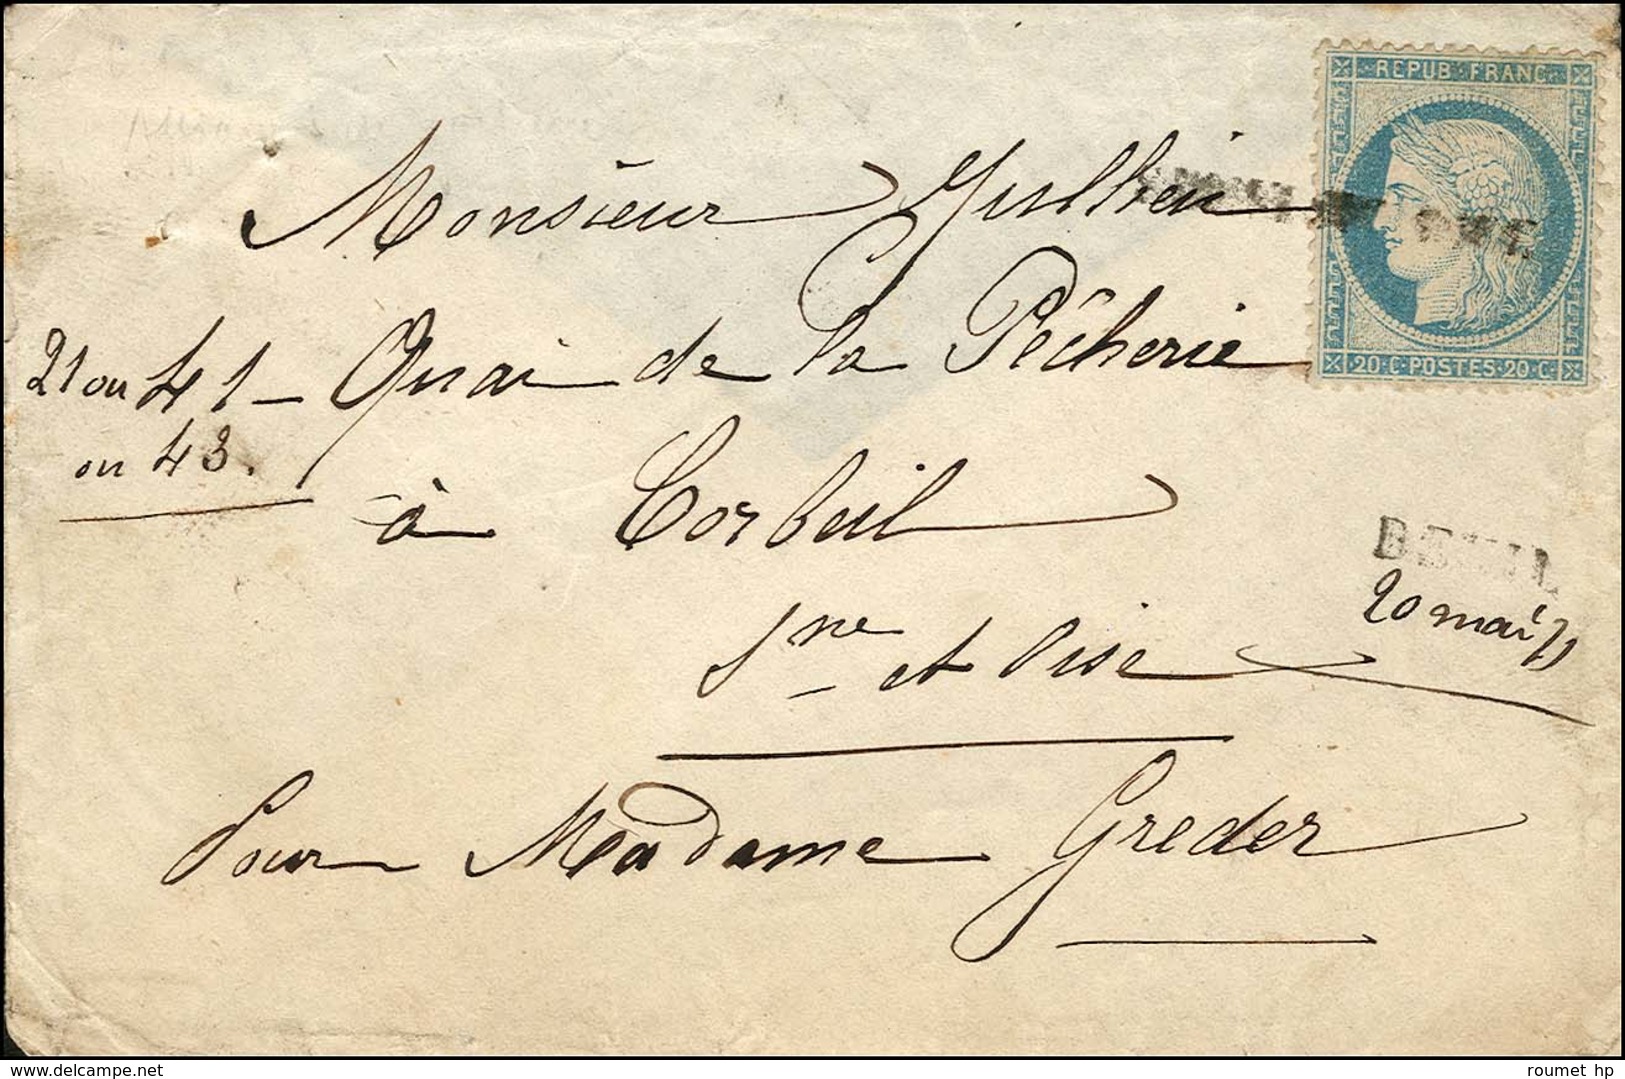 REPUB FRANC
Monsieur Jullien
21 ou 41 - Quai de la Pêcherie
ou 43.
à Corbeil
Sne et Oise
20 mai 71
Pour Madame Greder
20·C·POSTES·20·C·
www.delcampe.net
roumet hp